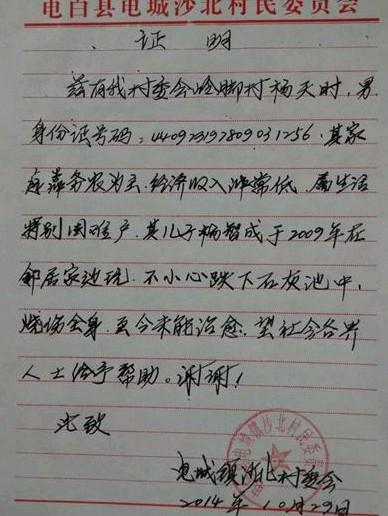 电白县电城沙北村民委员会
证明
兹有我村委会岭脚村杨天时，男
身份证号码：440923197809031256．其家
庭靠务农为主．经济收入非常低．属生活
特别困难户．其儿子杨智成于2009年在
邻居家边玩．不小心跌下石灰池中，
烧伤全身．至今未能治愈．望社会各界
人士给予帮助。谢谢！
此致
电城镇沙北村委会
2014年10月29日
电城镇沙北村民委员会